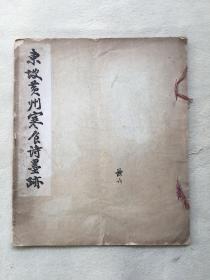 東坡黄州寒食诗墨跡